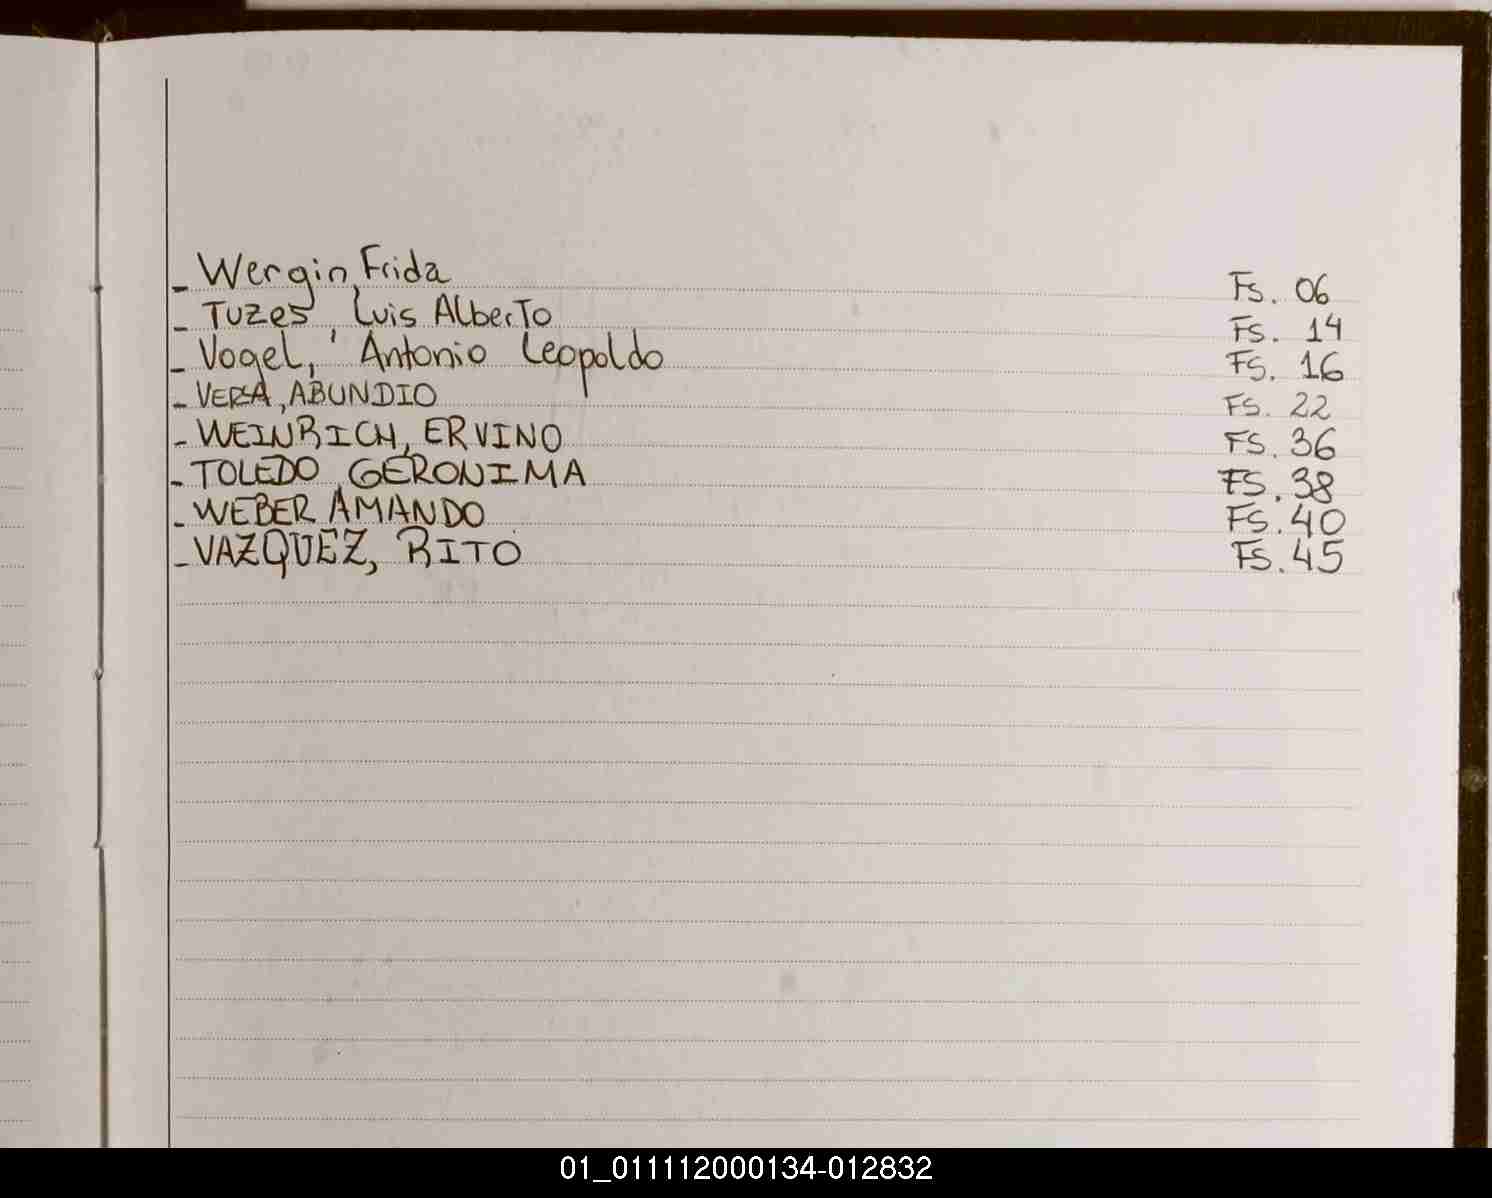 - Wergin, Frida Fs. 06
- Tuzes, Luis Alberto Fs. 14
- Vogel, Antonio Leopoldo Fs. 16
- VERA, ABUNDIO FS. 22
- WEINRICH, ERVINO FS. 36
- TOLEDO GERONIMA FS. 38
- WEBER AMANDO FS. 40
- VAZQUEZ, RITO FS. 45
01_011112000134-012832